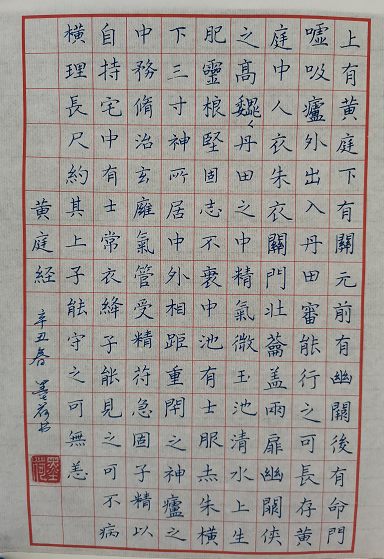 上有黄庭下有關元前有幽關後有命門
嘘吸廬外出入丹田審能行之可長存黄
庭中人衣朱衣關門壮蘥盖兩扉幽闕俠
之高魏丹田之中精氣微玉池清水上生
肥靈根堅固志不衰中池有士服赤朱横
下三寸神所居中外相距重閇之神廬之
中務脩治玄廱氣管受精苻急固子精以
自持宅中有士常衣絳子能見之可不病
横理長尺約其上子能守之可無恙
黄庭経
辛丑春 墨荷书